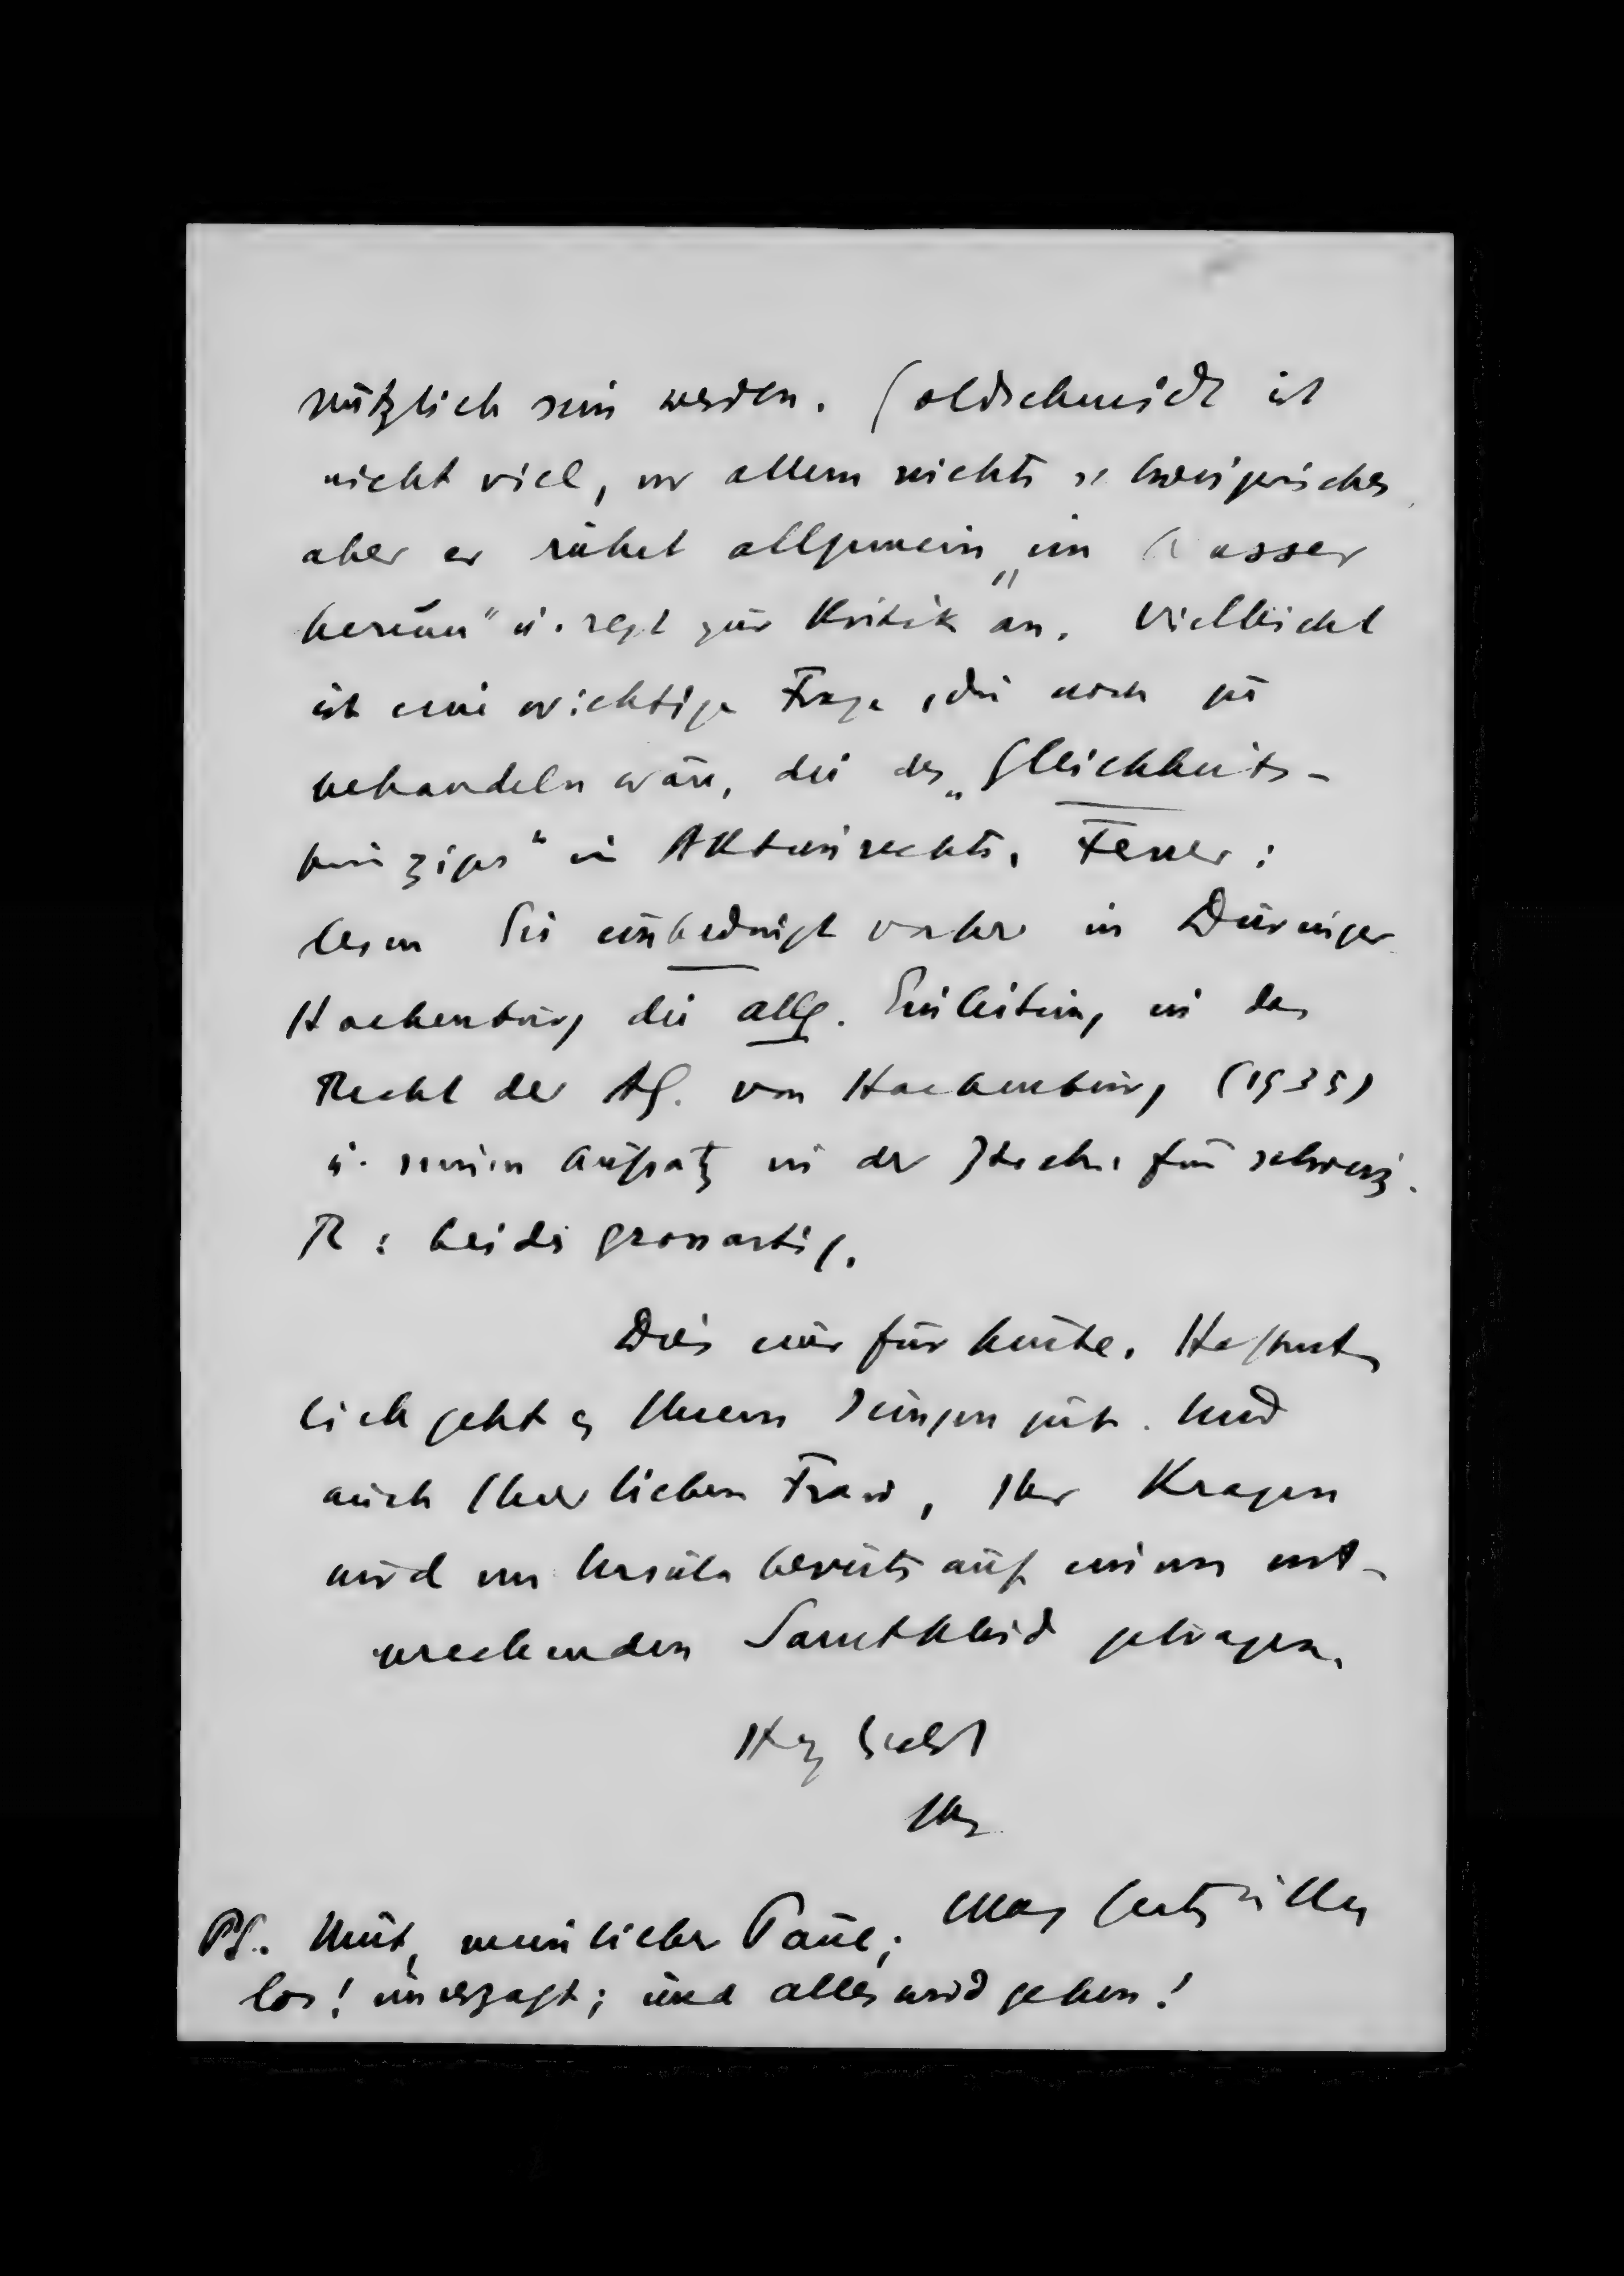 nützlich sein werden. Goldschmidt ist
nicht viel, vor allem nichts schweizerisches
aber er rührt allgemein „im Wasser
herum“ u. regt zur Kritik an. Vielleicht
ist eine wichtige Frage, die noch zu
behandeln wäre, die des „Gleichheits-
prinzips“ im Aktienrecht. Ferner:
lesen Sie unbedingt vorher in Düringer
Hachenburg die allg. Einleitung in das
Recht der AG. von Hachenburg (1935)
u. seinen Aufsatz in der Ztschr. für schweiz.
R: beide grossartig.
Dies nur für heute. Hoffent-
lich geht es Ihrem Jungen gut. Und
auch Ihrer lieben Frau, Ihr Kragen
wird von Ursula bereits auf einem ent-
sprechenden Samtkleid getragen.
Herzlichst
Ihr
Max Gutzwiller
PS. Mut, mein lieber Paul;
los! unverzagt; und alles wird gehen!